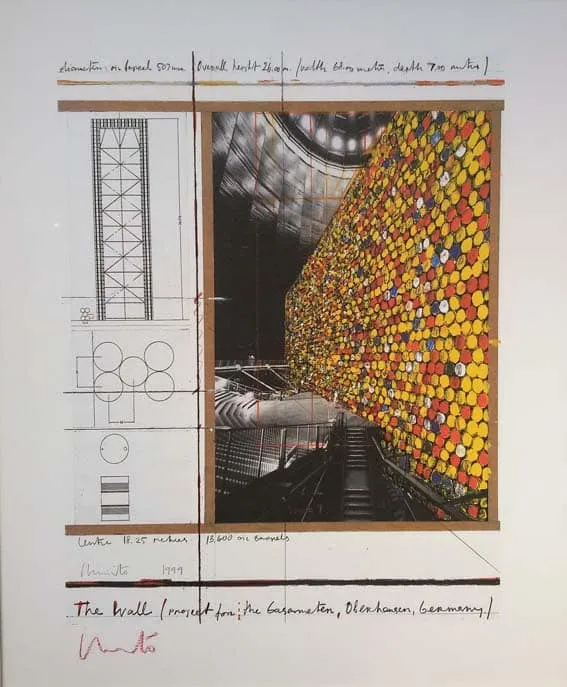 diameter: oil barrel 507 mm Overall height 26.00 m. (width 68.00 metres, depth 7.20 metres)
centre 18.25 metres 13,600 oil barrels
Christo 1999
The Wall (project for: the Gasometer, Oberhausen, Germany)
Christo